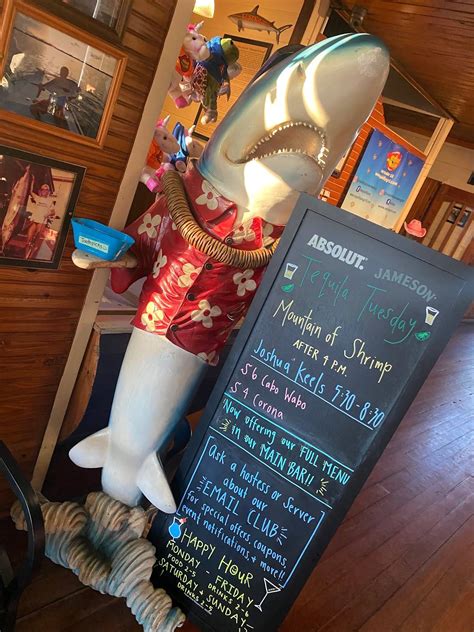 ABSOLUT. JAMESON.
Tequila Tuesday
Mountain of Shrimp
AFTER 4 P.M.
Joshua Keels 5:30-8:30
$6 Cabo Wabo
$4 Corona
Now offering our FULL MENU
in our MAIN BAR!!
Ask a hostess or Server
about our
EMAIL CLUB
for special offers, coupons,
event notifications, & more!!
HAPPY HOUR
MONDAY - FRIDAY
FOOD 2-5 DRINKS 2-6
SATURDAY & SUNDAY
DRINKS 2-5